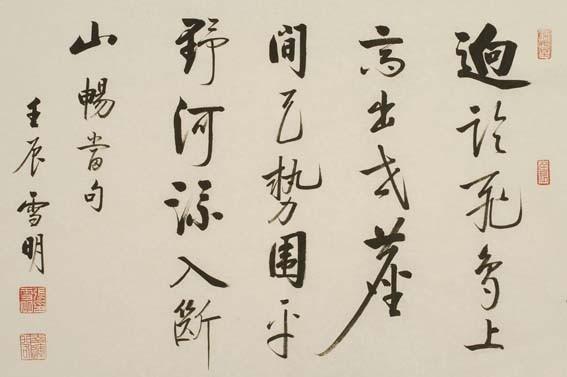 迥臨飛鳥上
高出世塵
間天勢圍平
野河流入斷
山 暢當句
壬辰雪明